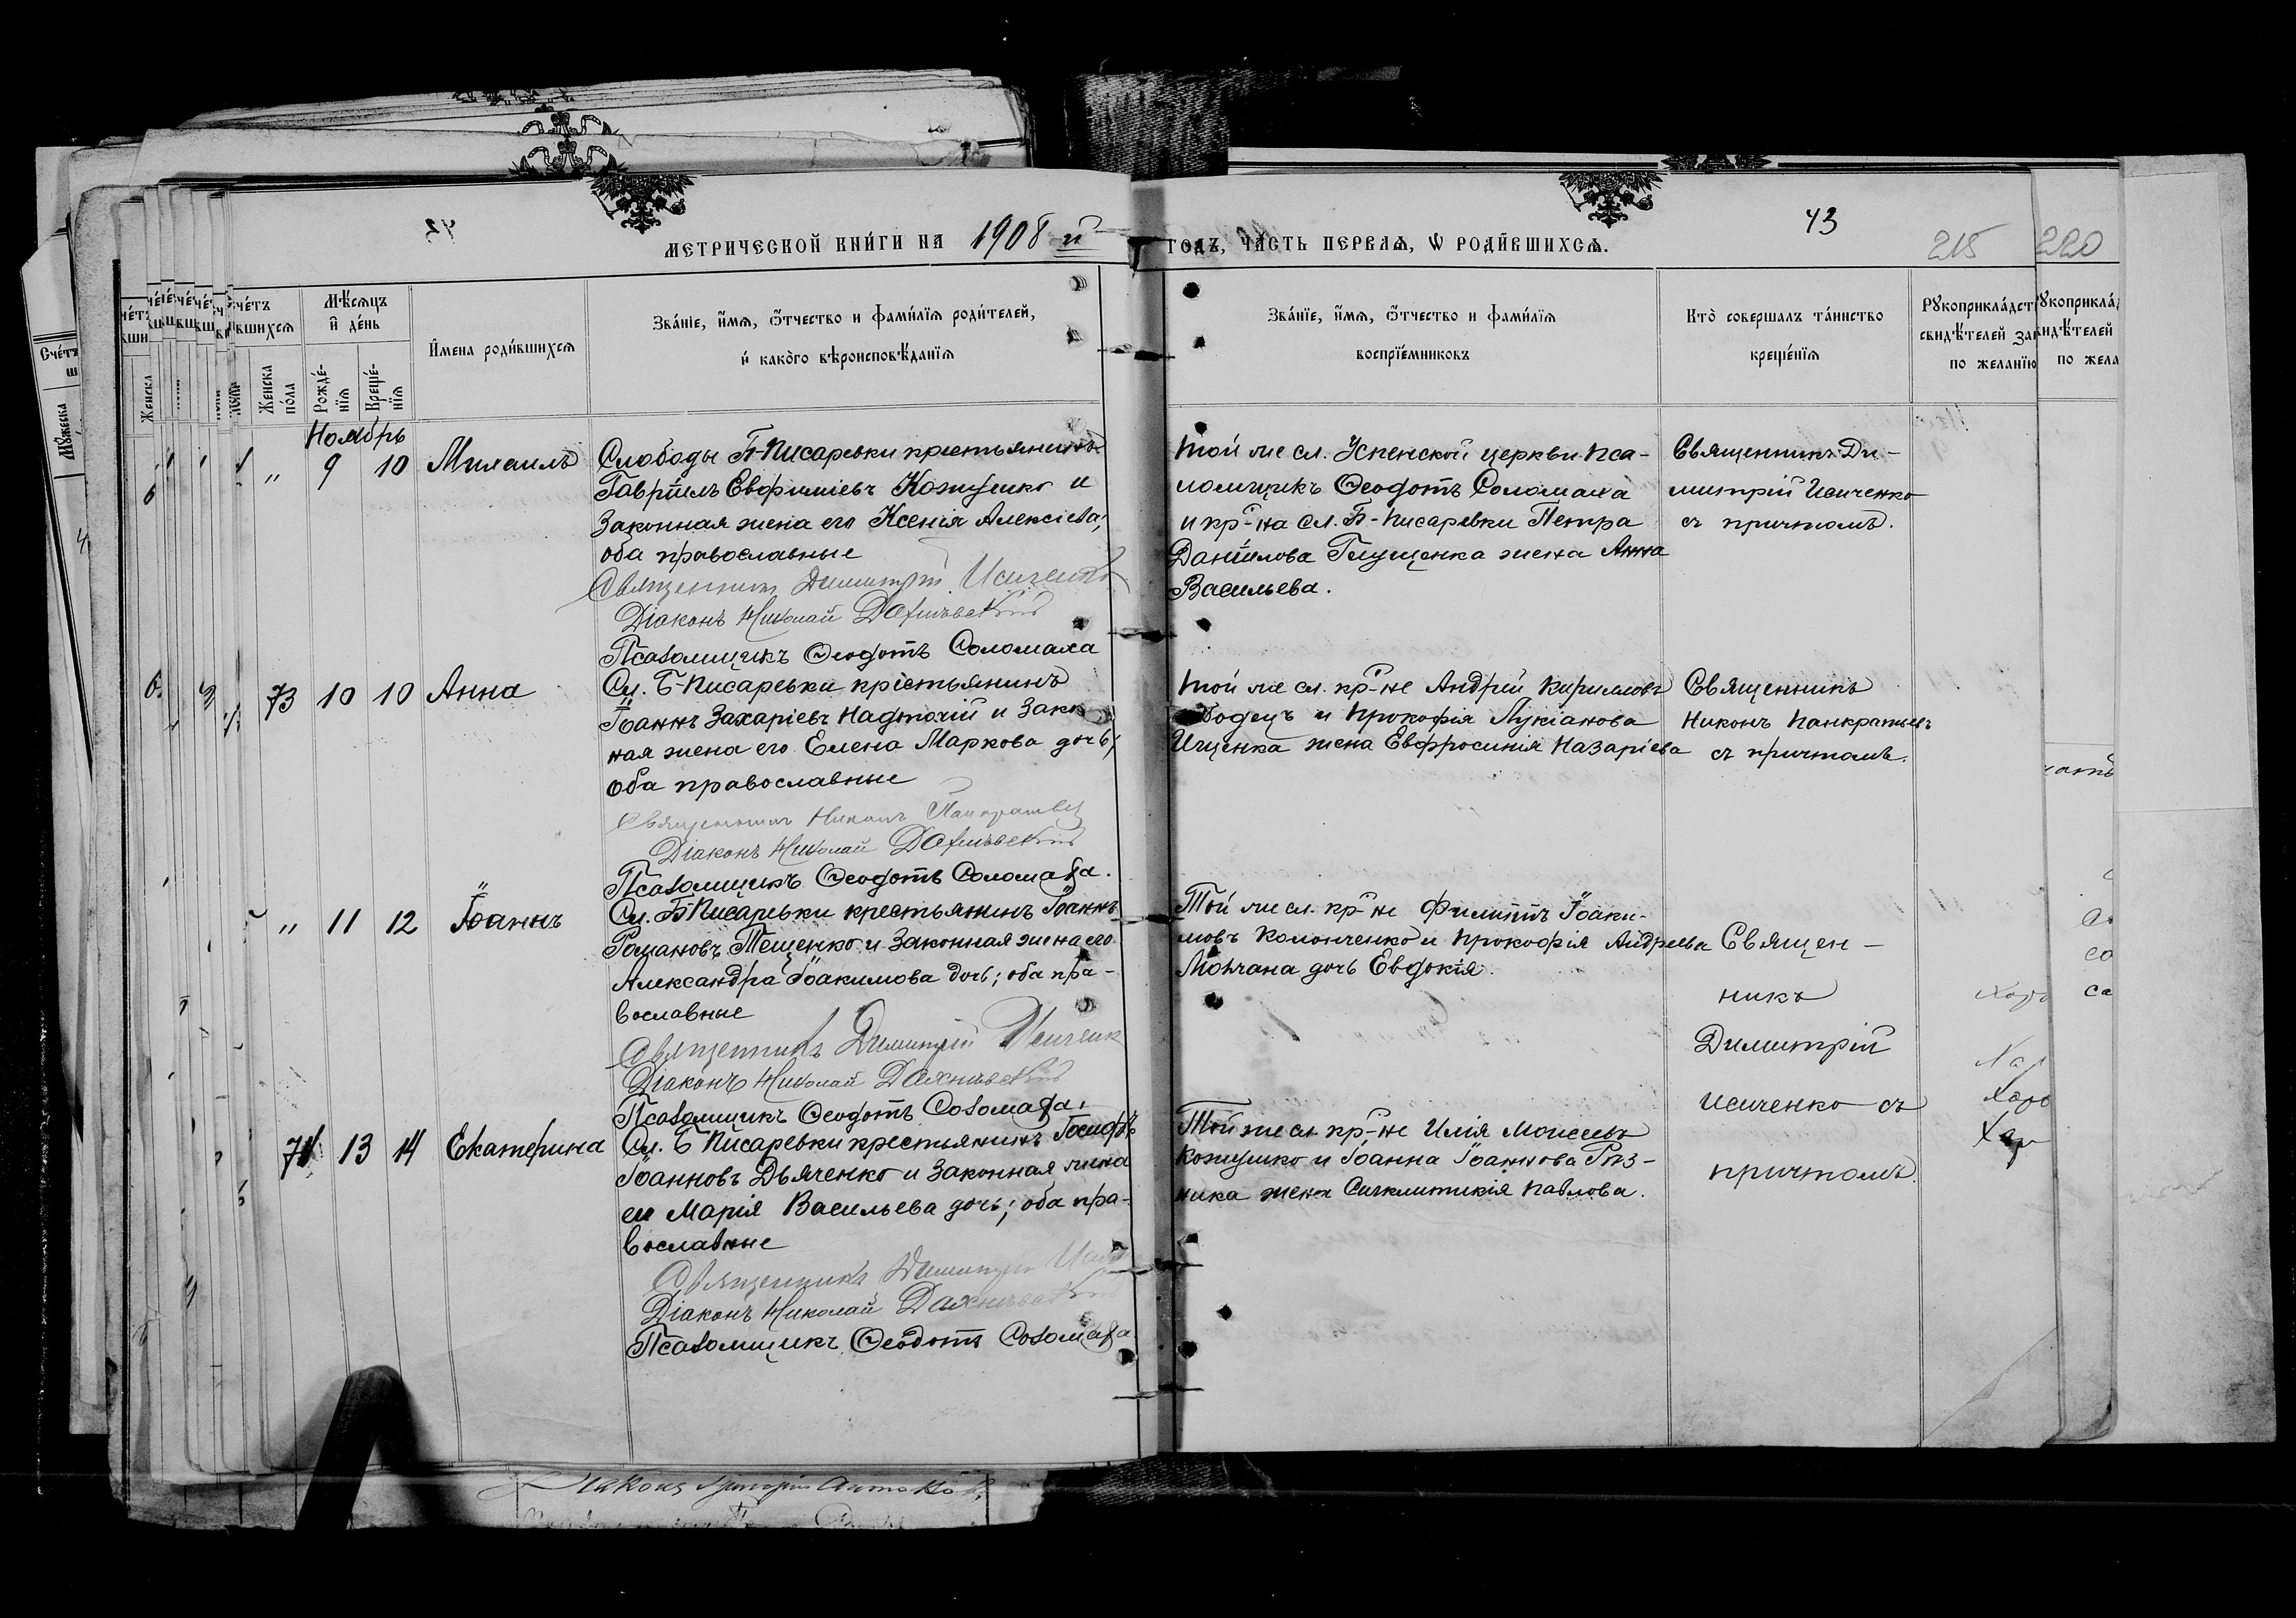 43
215
220
МЕТРИЧЕСКОЙ КНИ́ГИ НА 1908 й
ГОДЪ, ЧА́СТЬ ПЕРВАѦ, Ѡ РОДИ́ВШИХСѦ.
Сче́тъ
Же́нска по́ла
Мѣ́сѧцъ и҆ де́нь
Рожде́-нїѧ
Креще́-нїѧ
И҆мена роди́вшихсѧ
Зва́нїе, и҆́мѧ, ѻ҆́тчество и фами́лїѧ роди́телей,
и҆ како́го вѣроисповѣ́данїѧ
Зва́нїе, и҆́мѧ, ѻ҆́тчество и фами́лїѧ
воспрїе́мниковъ
Кто̀ соверша́лъ та́инство
креще́нїѧ
свидѣ́телей
по жела́нїю
Ноябрь
" 9 10 Михаилъ
Слободы Б-Писаревки крестьянинъ
Гавріилъ Евфиміевъ Кожушко и
законная жена его Ксенія Алексіева;
оба православные
Священникъ Димитрій Исиченко
Діаконъ Николай Дахнѣвскій
Псаломщикъ Ѳеодотъ Соломаха
Той же сл. Успенской церкви пса-
ломщикъ Ѳеодотъ Соломаха
и кр-на сл. Б-Писаревки Петра
Даніилова Глущенка жена Анна
Васильева.
Священникъ Ди-
митрій Исиченко
съ причтомъ.
73 10 10 Анна
Сл. Б-Писаревки крестьянинъ
Іоаннъ Захаріевъ Надточій и закон
ная жена его Елена Маркова дочь;
оба православные
Священникъ Никонъ Панкратьевъ
Діаконъ Николай Дахнѣвскій
Псаломщикъ Ѳеодотъ Соломаха.
Той же сл. кр-не Андрей Кирилловъ
и Прокофія Лукіанова
Ищенка жена Евфросинія Назаріева
Священникъ
Никонъ Панкратьевъ
съ причтомъ.
" 11 12 Іоаннъ
Сл. Б-Писаревки крестьянинъ Іоаннъ
Романовъ Тещенко и законная жена его
Александра Іоакимова дочь; оба пра-
вославные
Священникъ Димитрій Исиченк
Діаконъ Николай Дахнѣвскій
Псаломщикъ Ѳеодотъ Соломаха.
Той же сл. кр-не Филиппъ Іоаки-
мовъ Колонченко и Прокофія Андреева
Мовчана дочь Евдокія.
Священ-
никъ
Димитрій
Исиченко съ
причтомъ.
74 13 14 Екатерина
Сл. Б Писаревки крестьянинъ Іосифъ
Іоанновъ Дьяченко и законная жена
ею Марія Васильева дочь; оба пра-
вославные
Священникъ Димитрій
Діаконъ Николай Дахнѣвскій
Псаломщикъ Ѳеодотъ Соломаха
Той же сл. кр-не Илія Моисеевъ
Кожушко и Іоанна Іоаннова Рѣз-
ника жена Сигклитикія Павлова.